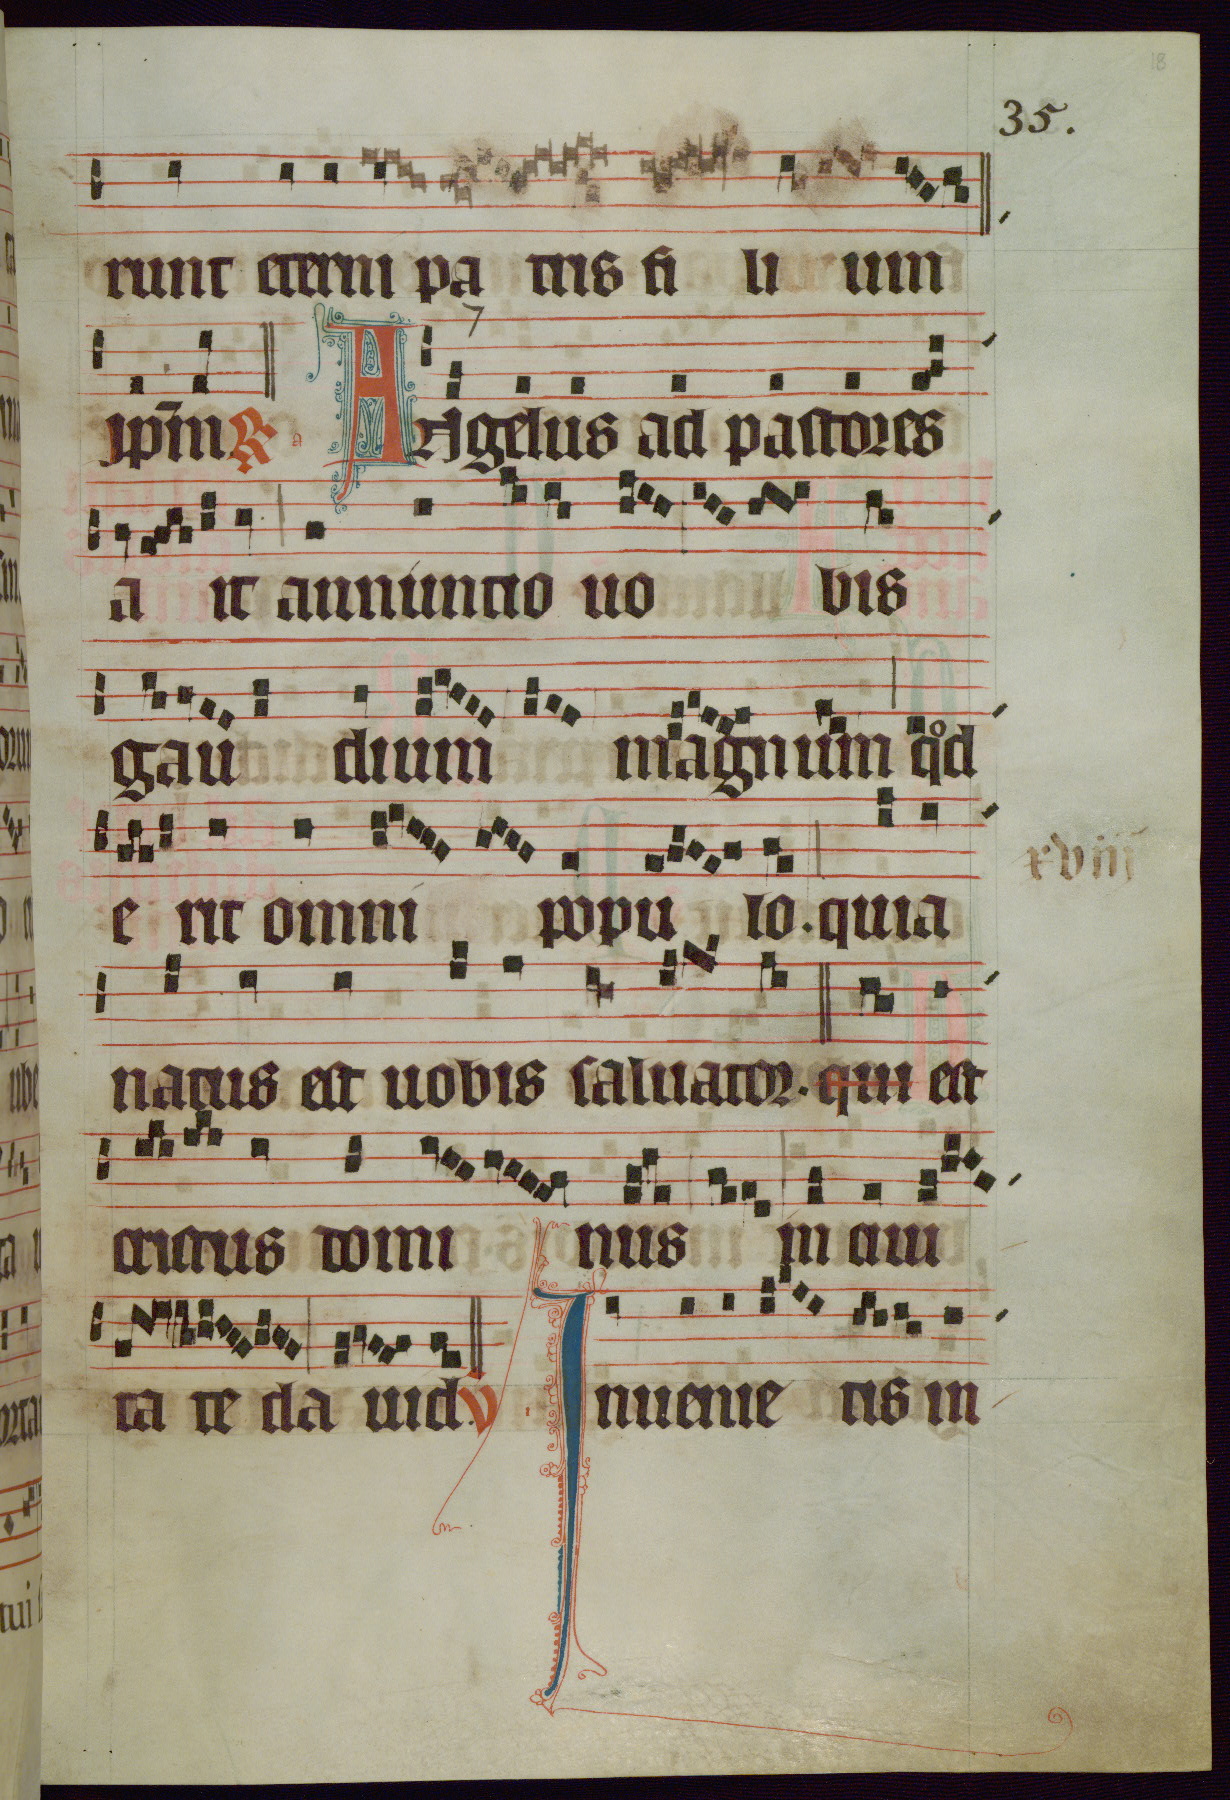 18
35.
runt eterni pa tris fi li um
7
xp̄m R Angelus ad pastores
a it annuntio uo bis
gau dium magnum qͦd
e rit omni popu lo. quia
xviii
natus est uobis saluator. qui est
cristus domi nus in ciui
ta te da uid. V Inuenie tis in